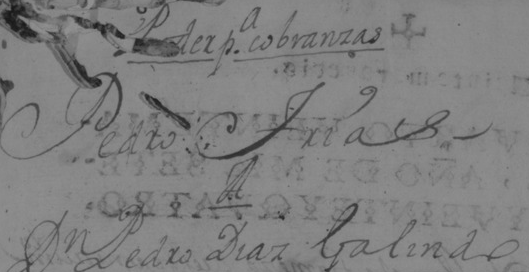 Poder p.a cobranzas
Pedro Frias
A
Dn Pedro Diaz Galindo